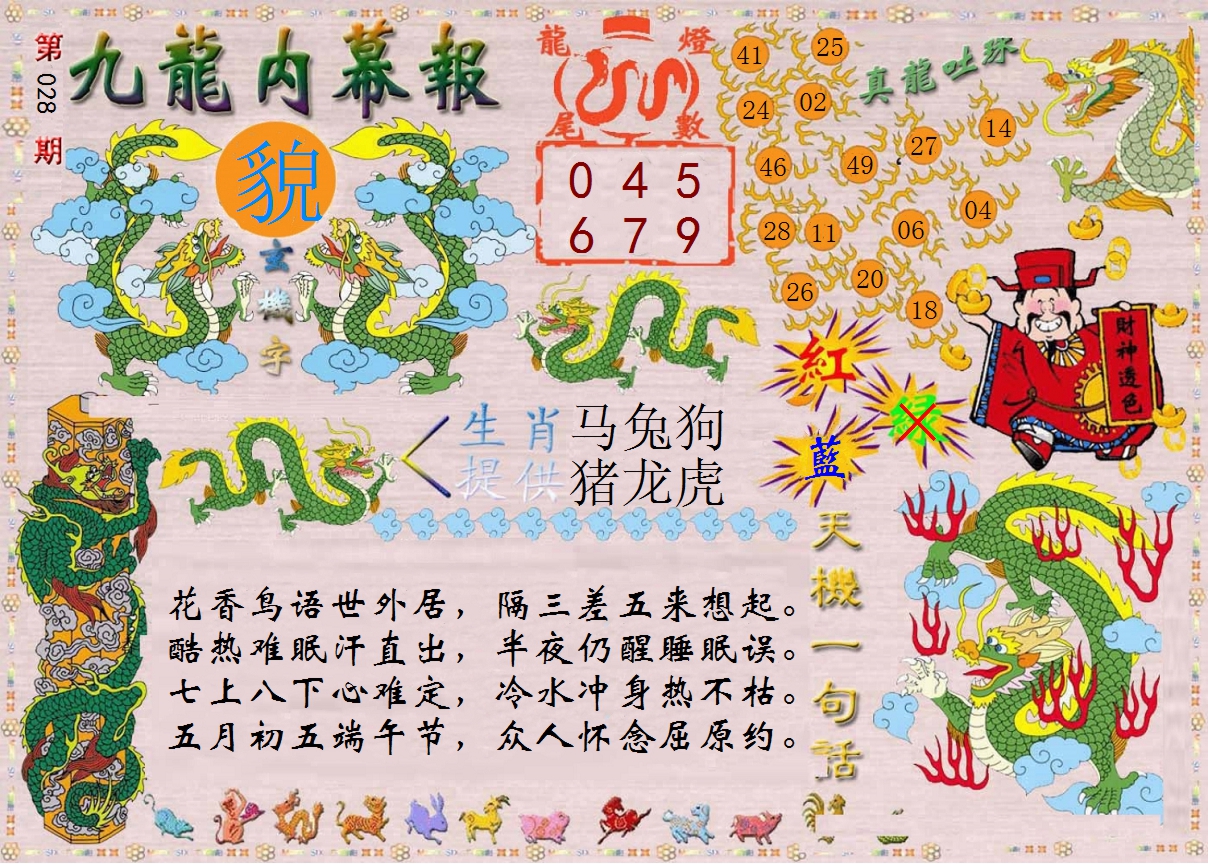 第028期
九龍內幕報
龍燈
尾數
0 4 5
6 7 9
真龍吐珠
41
25
24
02
46
49
27
14
28
11
06
04
26
20
18
貌
玄機字
紅
绿
藍
財神透色
生肖
提供
马兔狗
猪龙虎
天機一句話
花香鸟语世外居，隔三差五来想起。
酷热难眠汗直出，半夜仍醒睡眠误。
七上八下心难定，冷水冲身热不枯。
五月初五端午节，众人怀念屈原约。